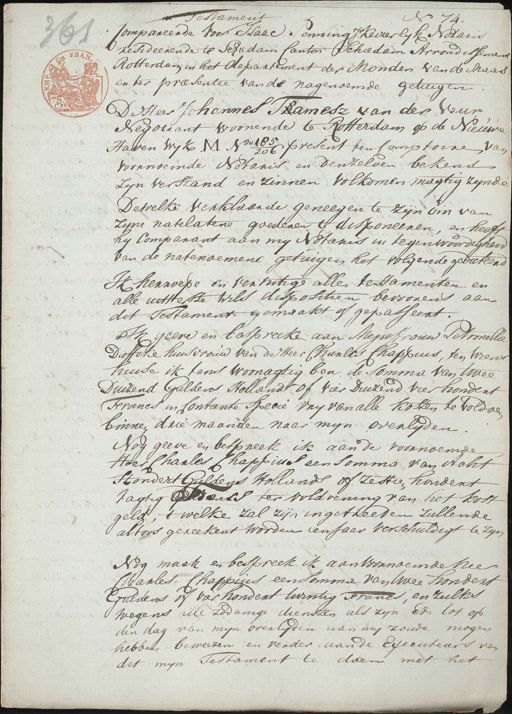 361
Testament
No. 74.
Compareerde voor Isaac Penning Nieverlyk Notaris
resideerende te Schiedam Canton Schiedam Arrondissement
Rotterdam in het departement der Monden van de Maas
en ter præsentie van de nagenoemde getuigen.
De Heer Johannes Thamesz van der Veur
Negotiant woonende te Rotterdam op de Nieuwe
Haven Wyk M. No. 185/206 present ten Comptoire van
voornoemde Notaris en denzelven bekend
zyn verstand en zinnen volkomen magtig zynde
Dewelke verklaarde geneegen te zyn om van
zyne natelatene goederen te disponeeren, en heeft
hy Comparant aan my Notaris in tegenwoordigheid
van de natenoemene getuigen het volgende
Ik herroepe en vernietige alle testamenten en
alle uitterste Wils dispositien bevoorens aan
dit Testament gemaakt of gepasseert.
Ik geeve en bespreeke aan Mejuffrouw Petronella
huisvrouw van de Heer Charles Chappuis, ten wiens
huise ik tans woonagtig ben de somma van Twee
Duizend Guldens Hollands of vier Duizend vier hondert
Francs in contante specie vry van alle kosten te voldoen
binnen drie maanden naar myn overlyden.
Nog geeve en bespreek ik aan de voornoemde
Heer Charles Chappuis een somma van Acht
Hondert Guldens Hollands of Zestien hondert
tagtig Francs ter voldoening van het kost
geld, 't welke zal zijn ingetreeden zullende
altoos gereekent worden een Jaar verschuldigt te zyn
Nog maak en bespreek ik aan voornoemde Heer
Charles Chappuis een somma van twee hondert
Guldens of vier hondert twintig Francs, en zulks
wegens alle zodanige diensten als zyn Ed: tot op
den dag van myn overlyden aan my zoude mogen
hebben beweezen en verder aan de Executeurs van
dit myn Testament te doen met het